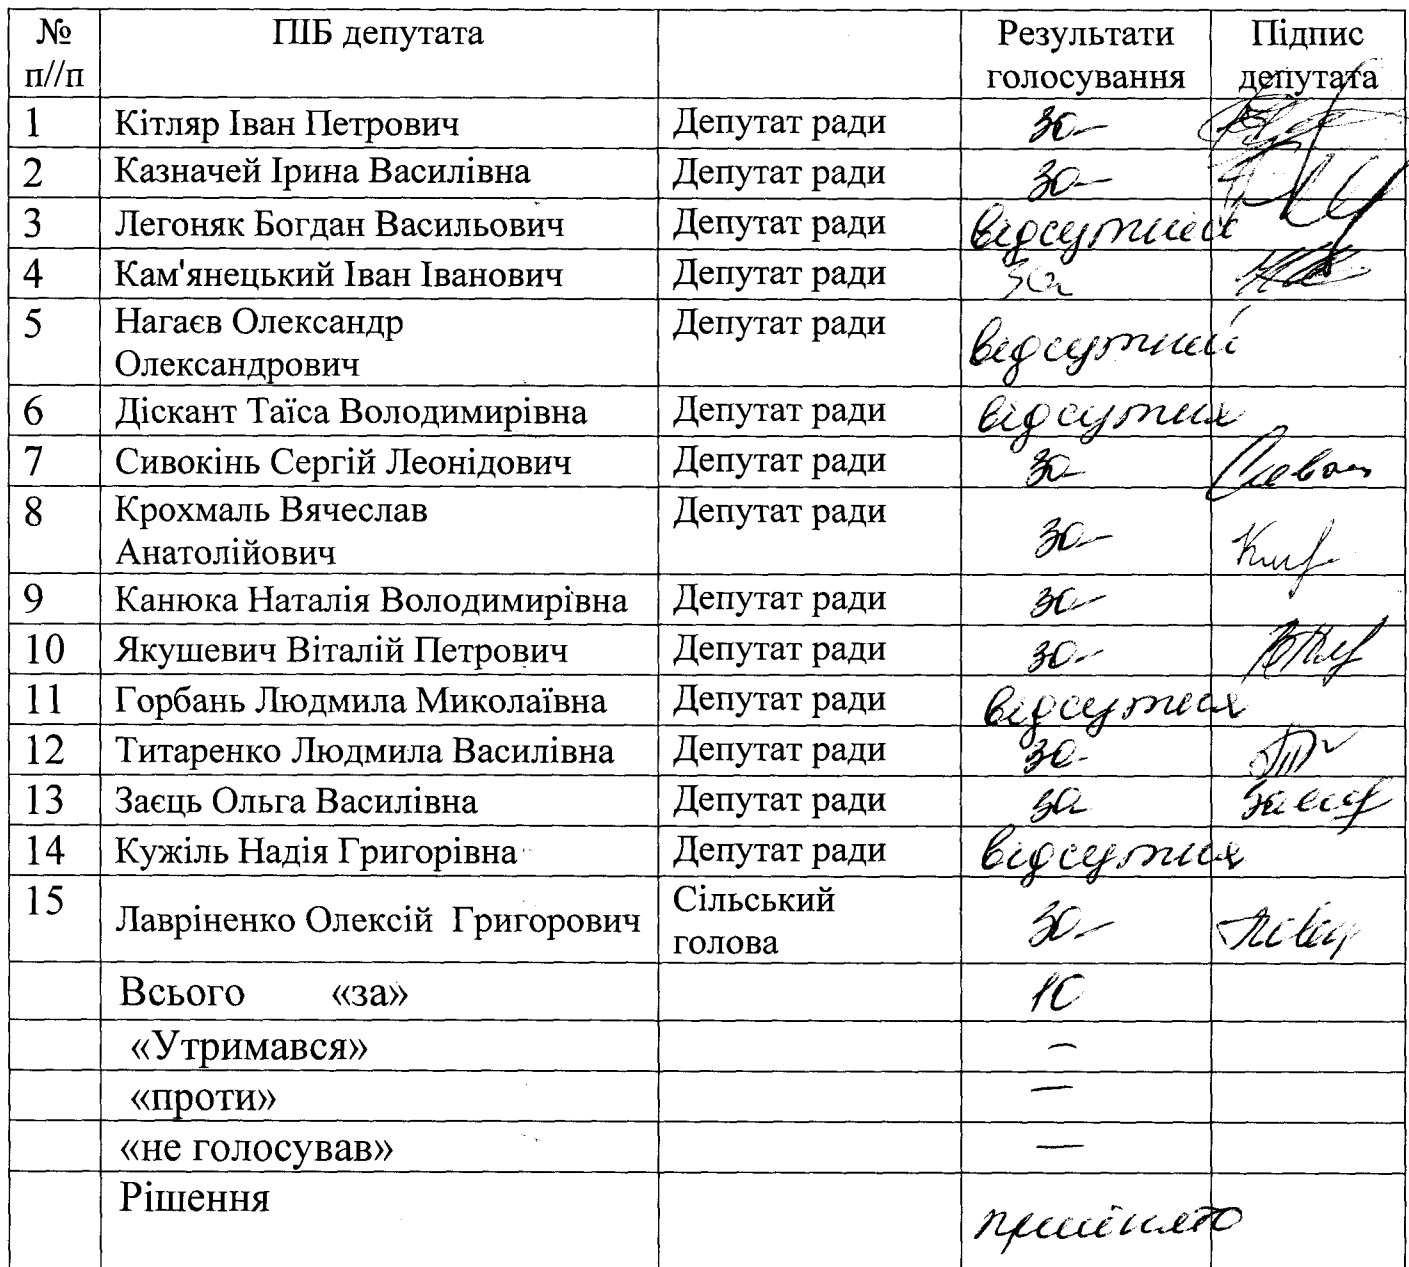 № п//п ПІБ депутата Результати голосування Підпис депутата
1 Кітляр Іван Петрович Депутат ради за
2 Казначей Ірина Василівна Депутат ради за
3 Легоняк Богдан Васильович Депутат ради відсутній
4 Кам'янецький Іван Іванович Депутат ради за
5 Нагаєв Олександр Депутат ради відсутній
Олександрович
6 Діскант Таїса Володимирівна Депутат ради відсутня
7 Сивокінь Сергій Леонідович Депутат ради за
8 Крохмаль Вячеслав Депутат ради за
Анатолійович
9 Канюка Наталія Володимирівна Депутат ради за
10 Якушевич Віталій Петрович Депутат ради за
11 Горбань Людмила Миколаївна Депутат ради відсутня
12 Титаренко Людмила Василівна Депутат ради за
13 Заєць Ольга Василівна Депутат ради за
14 Кужіль Надія Григорівна Депутат ради відсутня
15 Лавріненко Олексій Григорович Сільський голова за
Всього «за» 10
«Утримався» —
«проти» —
«не голосував» —
Рішення прийнято